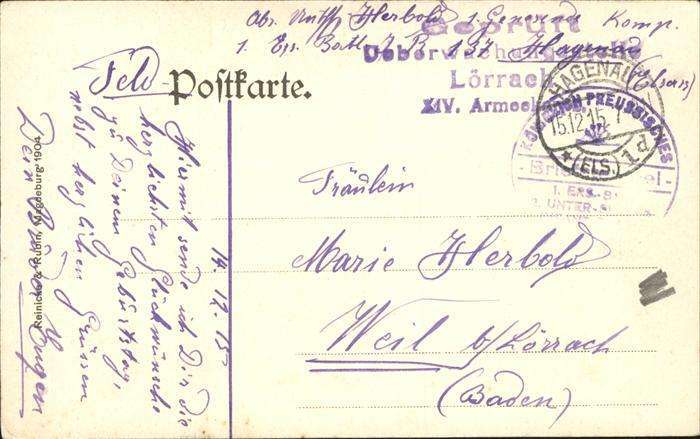 Abs. Untff. Herbold 1. Genesende Komp.
1. Ers. Batl. J. R. 137 Hagenau
(Elsass)
Geprüft
Ueberwachungsstelle
Lörrach
XIV. Armeekorps.
Feld-Postkarte.
HAGENAU
15.12.15.
* (ELS.) 1d
KÖNIGLICH PREUSSISCHES
Briefstempel
1. ERS.-B
14.12.15
Hiermit sende ich Dir die
herzlichsten Glückwünsche
zu Deinem Geburtstag,
nebst herzlichen Grüssen
Dein Bruder Eugen
Fräulein
Marie Herbold
Weil b/Lörrach
(Baden)
Reinicke & Rubin, Magdeburg 1904